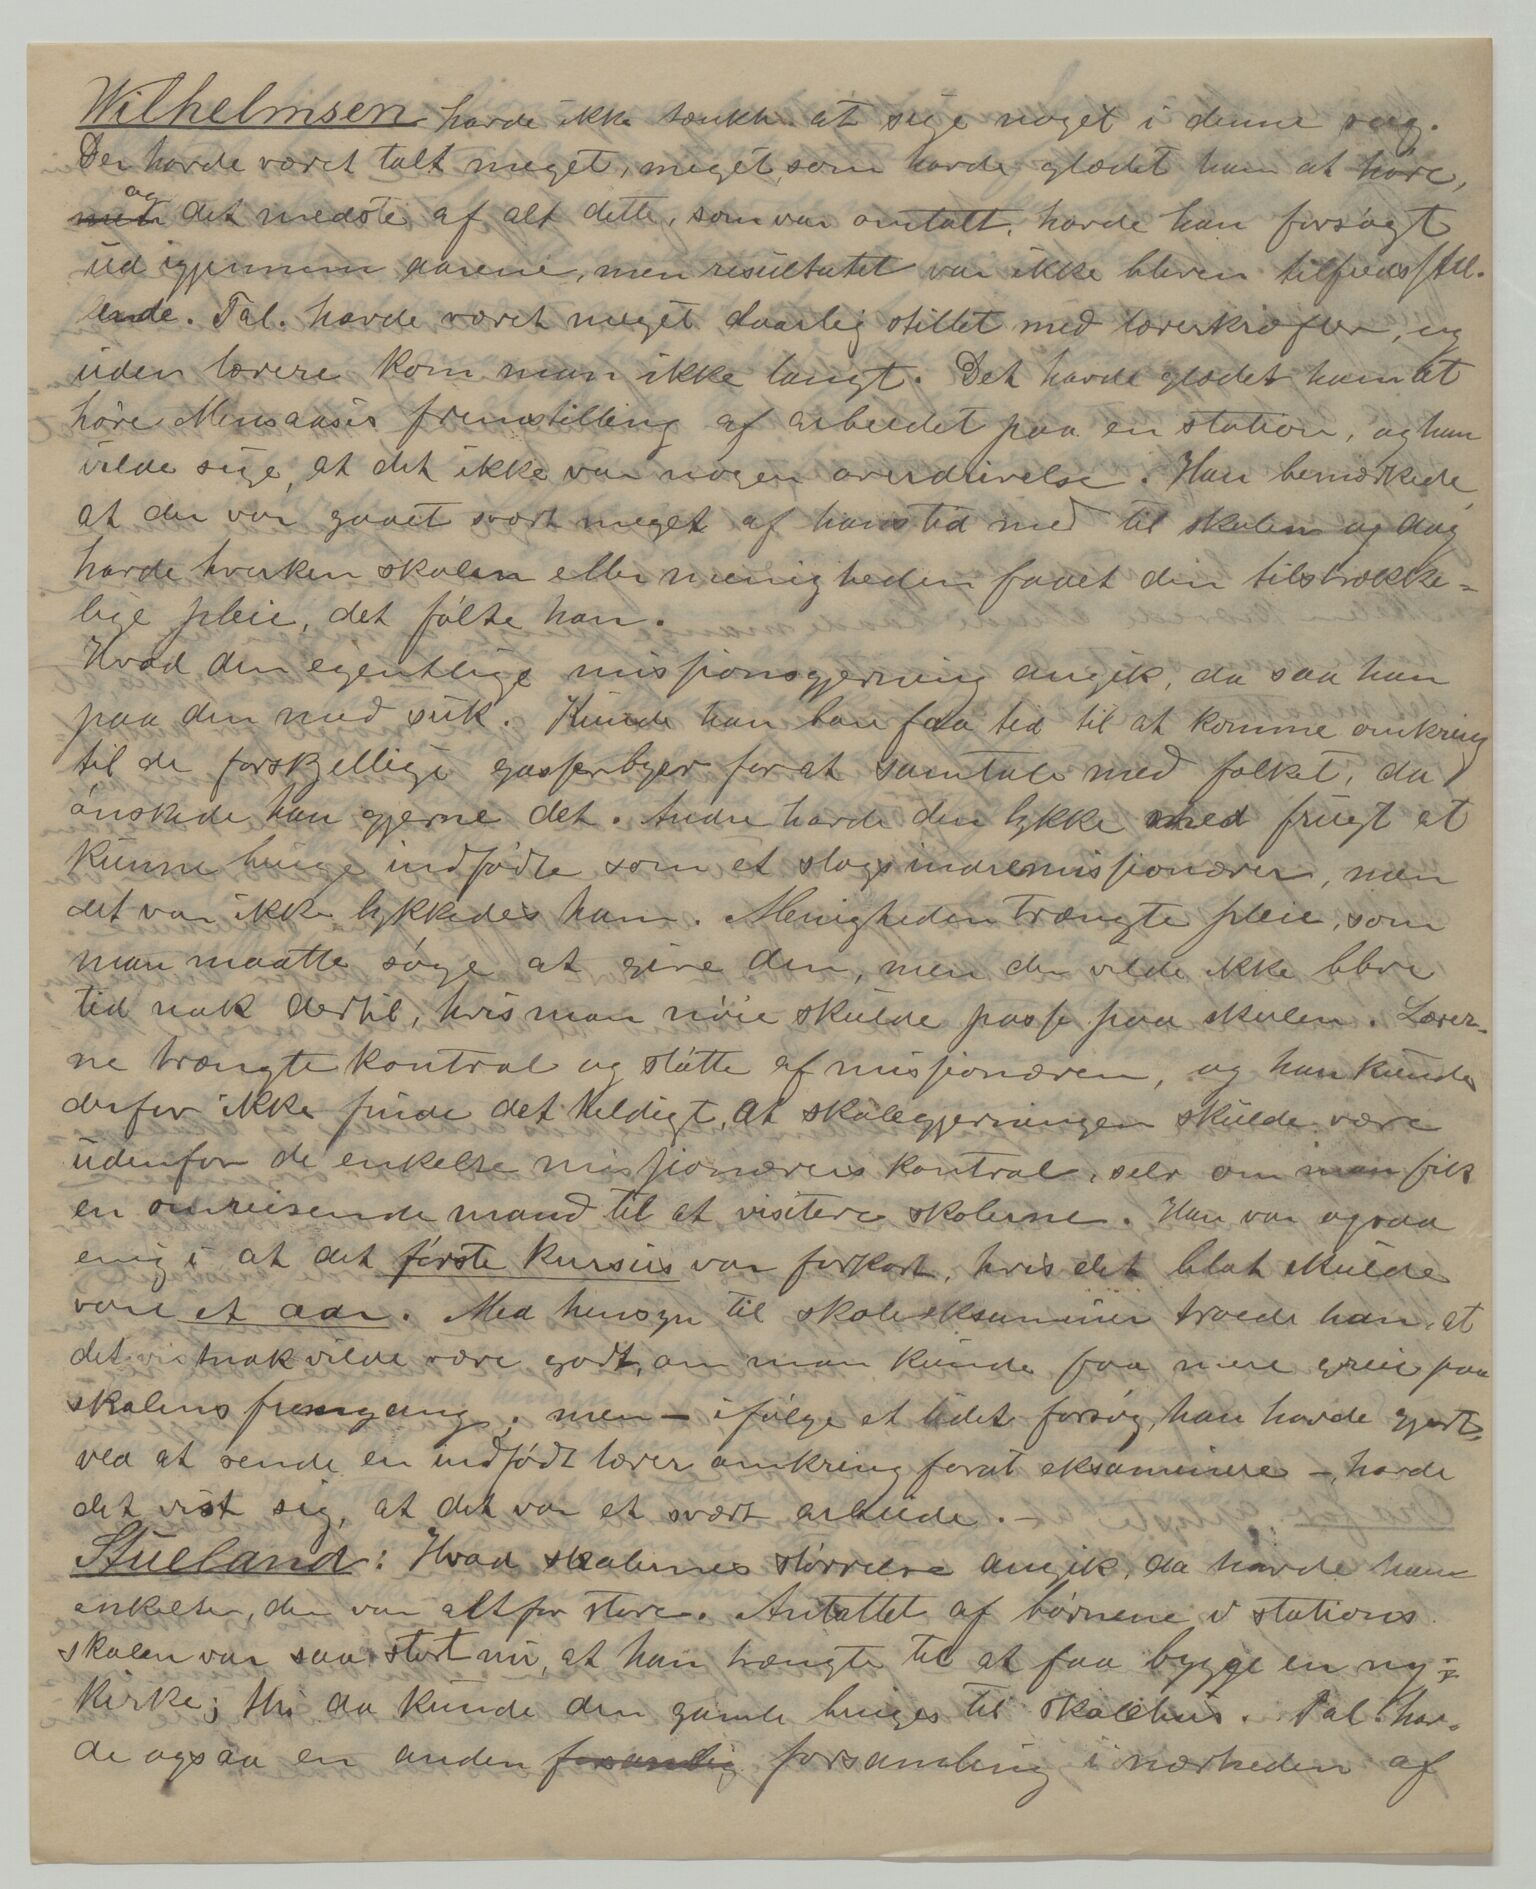 Wilhelmsen havde ikke tænkt at sige noget i denne sag.
Der havde været talt meget, meget, som havde glædet ham at høre,
og det medste af alt dette, som var omtalt, havde han forsøgt
ud igjennem aarene, men resultatet var ikke bleven tilfredsstil-
lende. Tal. havde været meget daarlig stillet med lærerkræfter, og
uden lærere kom man ikke langt. Det havde glædet ham at
høre Mensaasis fremstilling af arbeidet paa en station, og han
vilde sige, at det ikke var nogen overdrivelse. Han bemærkede,
at der var gaaet svært meget af hans tid med til skolen og dog
havde hverken skolen eller menigheden faaet den tilstrække=
lige pleie, det følte han.
Hvad den egentlige missionsgjerning angik, da saa han
paa den med suk. Kunde han bare faa tid til at komme omkring
til de forskjellige gasserbyer for at samtale med folket, da
ønskede han gjerne det. Andre havde den lykke med frugt at
kunne bruge indfødte som et slags indremissionærer, men
det var ikke lykkedes ham. Menigheden trængte pleie, som
man maatte søge at give den, men der vilde ikke blive
tid nok dertil, hvis man nøie skulde passe paa skolen. Lærer-
ne trængte kontrol og støtte af missionæren, og han kunde
derfor ikke finde det heldigt, at skolegjerningen skulde være
udenfor de enkelte missionærers kontrol, selv om man fik
en omreisende mand til at visitere skolerne. Han var ogsaa
enig i at det første kursus var forkort, hvis det blot skulde
vare et aar. Med hensyn til skoleeksaminer troede han, at
det nok vilde være godt, om man kunde faa mere greie paa
skolens fremgang; men – ifølge et lidet forsøg, han havde gjort
ved at sende en indfødt lærer omkring forat eksaminere –, havde
det vist sig, at det var et svært arbeide. –
Stueland: Hvad skolernes størrelse angik, da havde han
enkelte, der var altfor store. Antallet af børnene i stations
skolen var saa stort nu, at han trængte til at faa bygge en ny
kirke; thi da kunde den gamle bruges til skolehus. Tal. hav-
de ogsaa en anden forsamlig forsamling i nærheden af